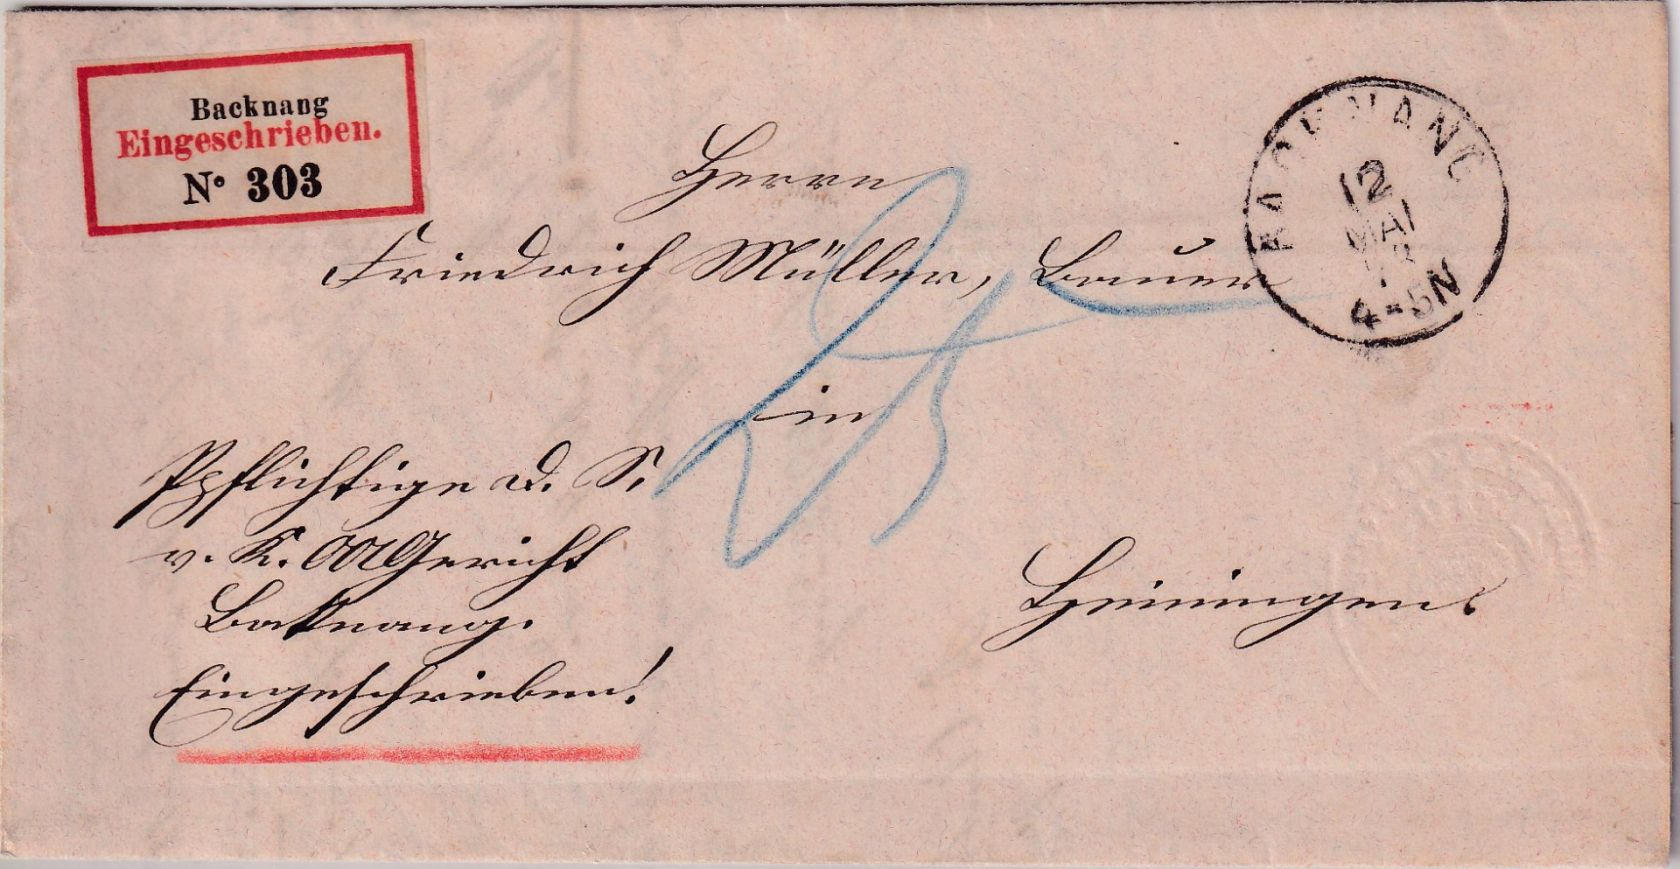 Backnang
Eingeschrieben.
Nº 303
BACKNANG
12
MAI
4-5N
Herrn
Friedrich Müller, Bauer
25
in
Pflichtige D. S.
v. K. Gericht
Backnang.
Heiningen
Eingeschrieben!